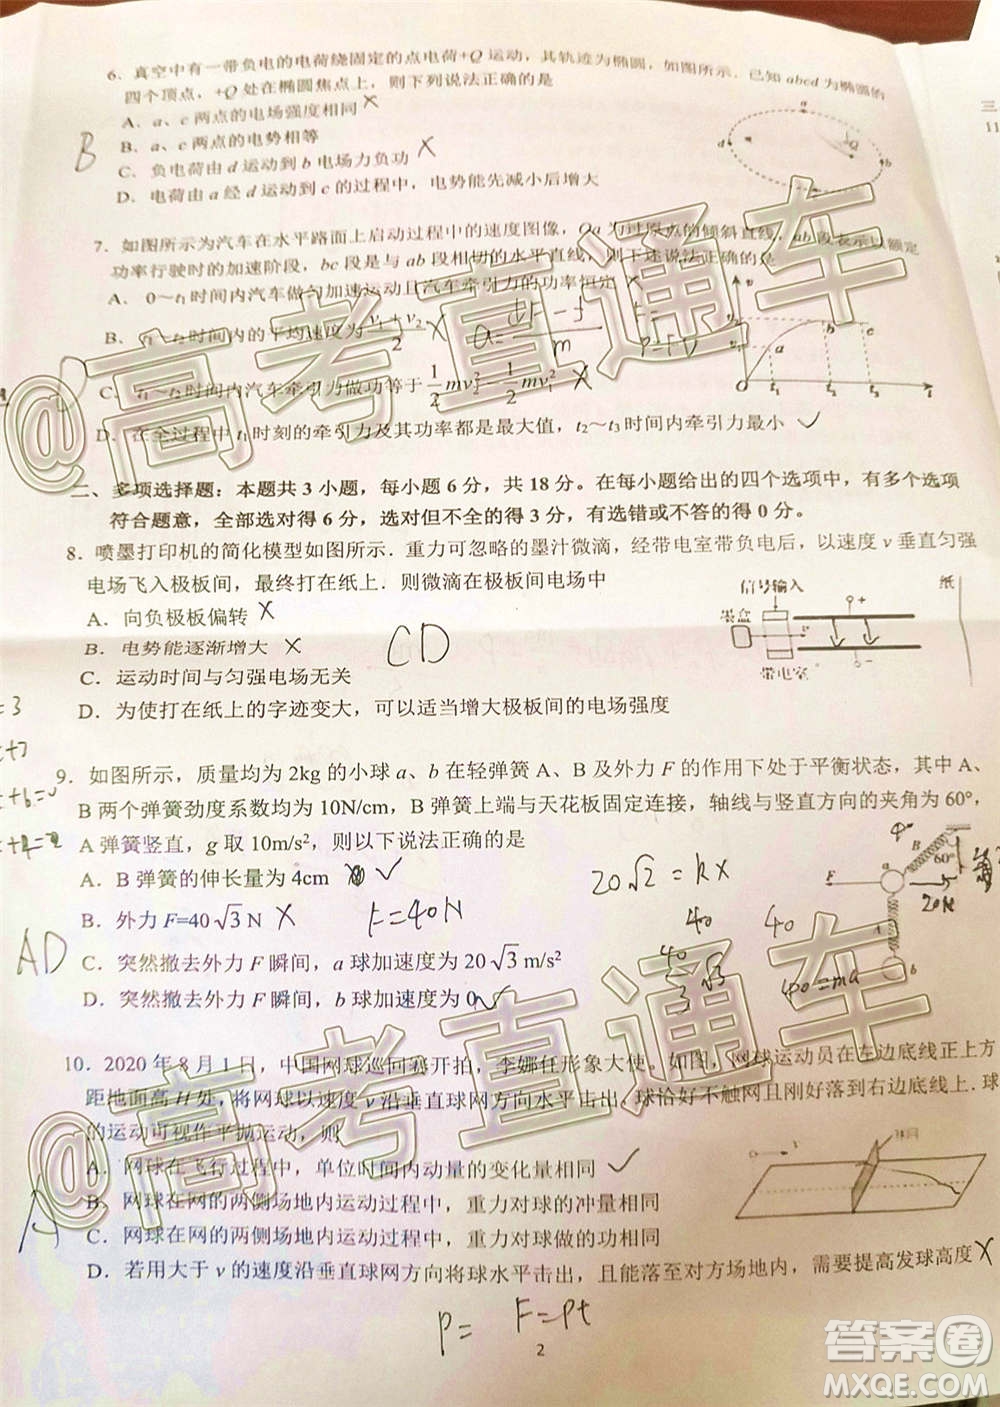 6．真空中有一带负电的电荷绕固定的点电荷+Q 运动，其轨迹为椭圆，如图所示．已知 abcd 为椭圆的
四个顶点，+Q 处在椭圆焦点上，则下列说法正确的是
A．a、c 两点的电场强度相同 ×
B．a、c 两点的电势相等
B
C．负电荷由 d 运动到 b 电场力负功 ×
D．电荷由 a 经 d 运动到 c 的过程中，电势能先减小后增大
a
d
b
Q
7．如图所示为汽车在水平路面上启动过程中的速度图像，Oa 为过原点的倾斜直线，ab 段表示以额定
功率行驶时的加速阶段，bc 段是与 ab 段相切的水平直线，则下述说法正确的是
A．0～t₁ 时间内汽车做匀加速运动且汽车牵引力的功率恒定 ×
B．t₁～t₂ 时间内的平均速度为 (v₁+v₂)/2 ×
C．t₁～t₂ 时间内汽车牵引力做功等于 1/2 mv₂² − 1/2 mv₁² ×
D．在全过程中 t₁ 时刻的牵引力及其功率都是最大值，t₂～t₃ 时间内牵引力最小 ✓
v
v₂
v₁
a
b
c
0 t₁ t₂ t₃ t
二、多项选择题：本题共 3 小题，每小题 6 分，共 18 分。在每小题给出的四个选项中，有多个选项
符合题意，全部选对得 6 分，选对但不全的得 3 分，有选错或不答的得 0 分。
8．喷墨打印机的简化模型如图所示．重力可忽略的墨汁微滴，经带电室带负电后，以速度 v 垂直匀强
电场飞入极板间，最终打在纸上．则微滴在极板间电场中
A．向负极板偏转 ×
B．电势能逐渐增大 ×
CD
C．运动时间与匀强电场无关
D．为使打在纸上的字迹变大，可以适当增大极板间的电场强度
信号输入
墨盒
带电室
纸
9．如图所示，质量均为 2kg 的小球 a、b 在轻弹簧 A、B 及外力 F 的作用下处于平衡状态，其中 A、
B 两个弹簧劲度系数均为 10N/cm，B 弹簧上端与天花板固定连接，轴线与竖直方向的夹角为 60°，
A 弹簧竖直，g 取 10m/s²，则以下说法正确的是
A．B 弹簧的伸长量为 4cm ✓
20√2=kx
B．外力 F=40√3 N ×
F=40N
AD
C．突然撤去外力 F 瞬间，a 球加速度为 20√3 m/s²
D．突然撤去外力 F 瞬间，b 球加速度为 0 ✓
40=ma
B
60°
a
F
A
b
20N
10．2020 年 8 月 1 日，中国网球巡回赛开拍，李娜任形象大使。如图，网球运动员在左边底线正上方
距地面高 H 处，将网球以速度 v 沿垂直球网方向水平击出，球恰好不触网且刚好落到右边底线上．球
的运动可视作平抛运动，则
A．网球在飞行过程中，单位时间内动量的变化量相同 ✓
B．网球在网的两侧场地内运动过程中，重力对球的冲量相同
C．网球在网的两侧场地内运动过程中，重力对球做的功相同
A
D．若用大于 v 的速度沿垂直球网方向将球水平击出，且能落至对方场地内，需要提高发球高度 ×
P= F=Pt
2
@高考直通车
@高考直通车
答案圈
MXQE.COM